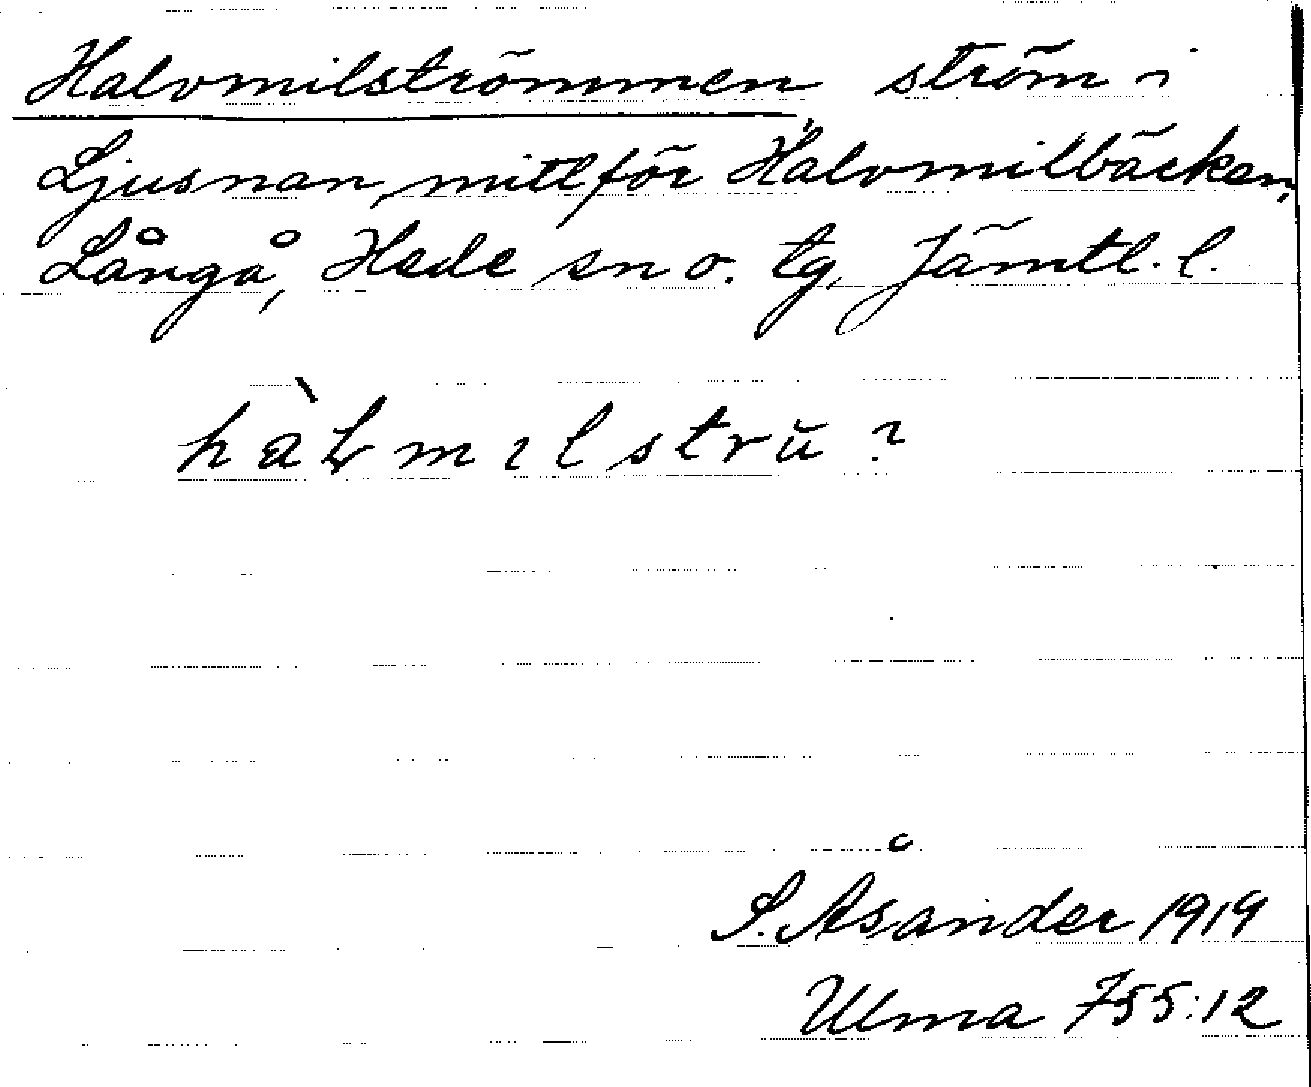 Halvmilströmmen ström i
Ljusnan, mitt för Halvmilbäcken,
Långå, Hede sn o. tg, Jämtl. l.
hàlvmilstrŭ?
S. Åsander 1919
Ulma 755:12